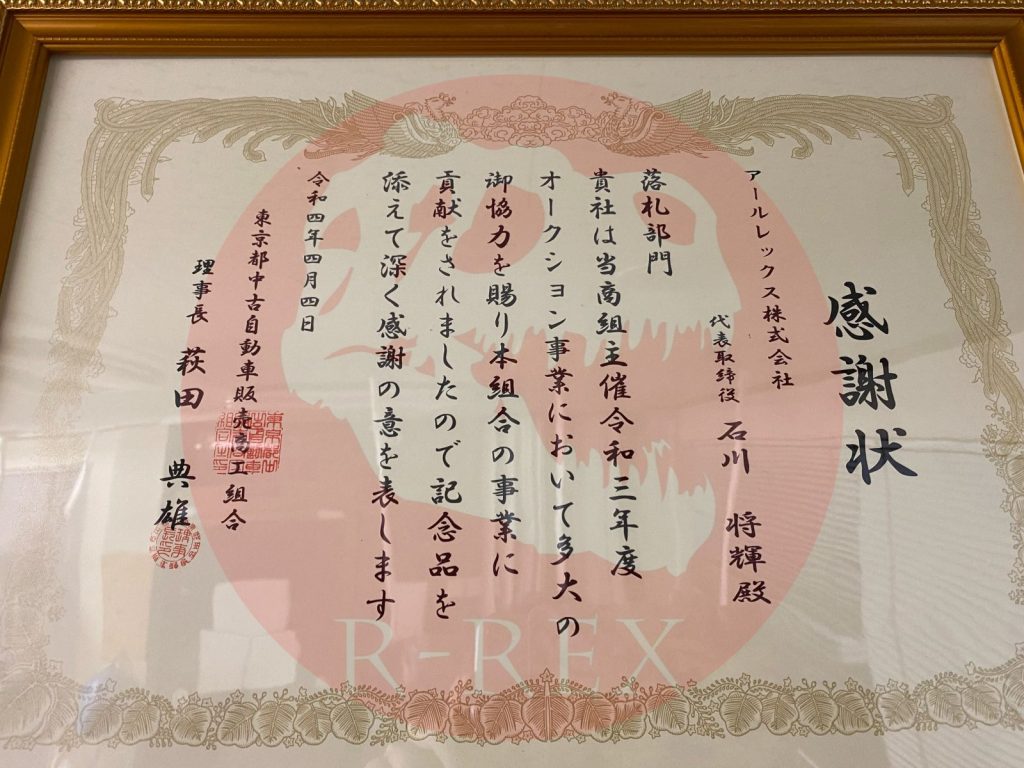 感謝状
アールレックス株式会社
代表取締役 石川 将輝殿
落札部門
貴社は当商組主催令和三年度
オークション事業において多大の
御協力を賜り本組合の事業に
貢献をされましたので記念品を
添えて深く感謝の意を表します
令和四年四月四日
東京都中古自動車販売商工組合
理事長 萩田 典雄
R-REX